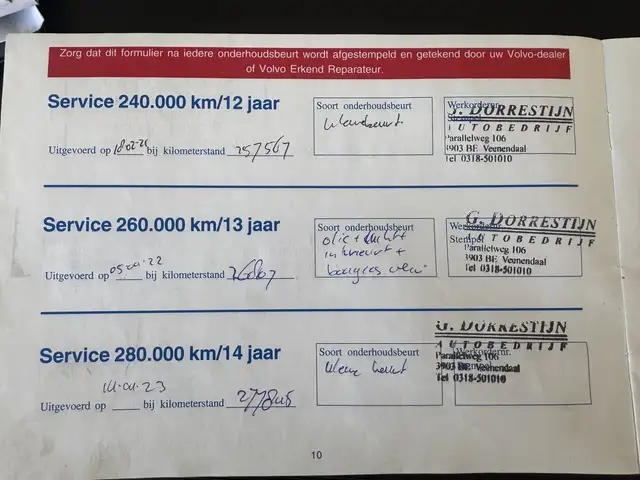 Zorg dat dit formulier na iedere onderhoudsbeurt wordt afgestempeld en getekend door uw Volvo-dealer
of Volvo Erkend Reparateur.
Service 240.000 km/12 jaar
Uitgevoerd op bij kilometerstand 257567
Soort onderhoudsbeurt
Werkordernr.
Stempel
G. DORRESTIJN
AUTOBEDRIJF
Parallelweg 106
3903 BE Veenendaal
Tel 0318-501010
Service 260.000 km/13 jaar
Uitgevoerd op bij kilometerstand
Soort onderhoudsbeurt
olie +
Werkordernr.
Stempel
G. DORRESTIJN
AUTOBEDRIJF
Parallelweg 106
3903 BE Veenendaal
Tel 0318-501010
Service 280.000 km/14 jaar
Uitgevoerd op bij kilometerstand
Soort onderhoudsbeurt
Werkordernr.
Stempel
G. DORRESTIJN
AUTOBEDRIJF
Parallelweg 106
3903 BE Veenendaal
Tel 0318-501010
10